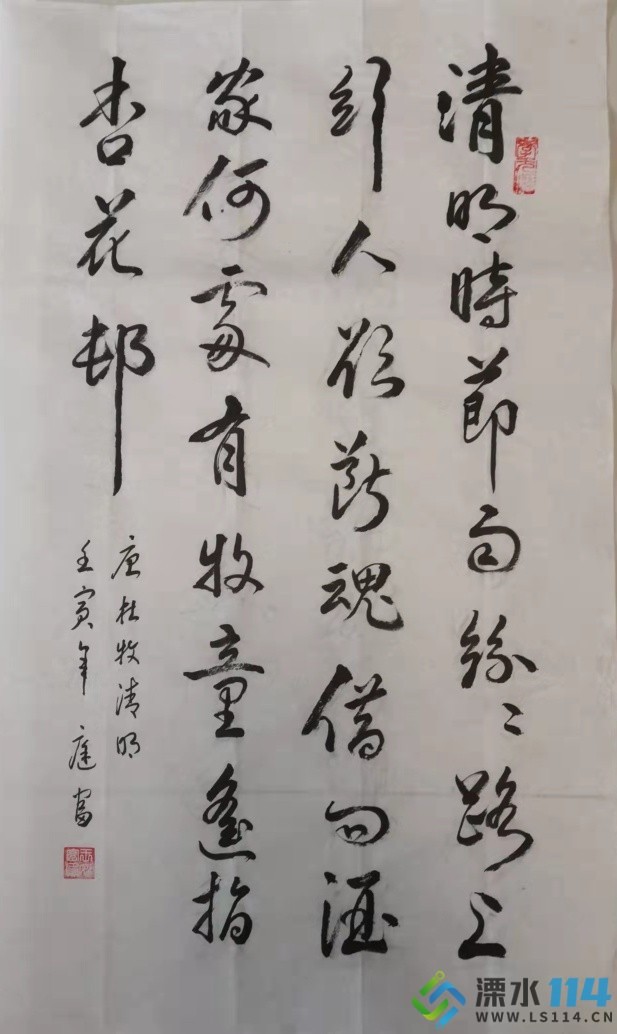 清明時節雨紛々路上
行人欲断魂借问酒
家何處有牧童遙指
杏花邨
唐杜牧清明
壬寅年 庭富
溧水114
WWW.LS114.CN